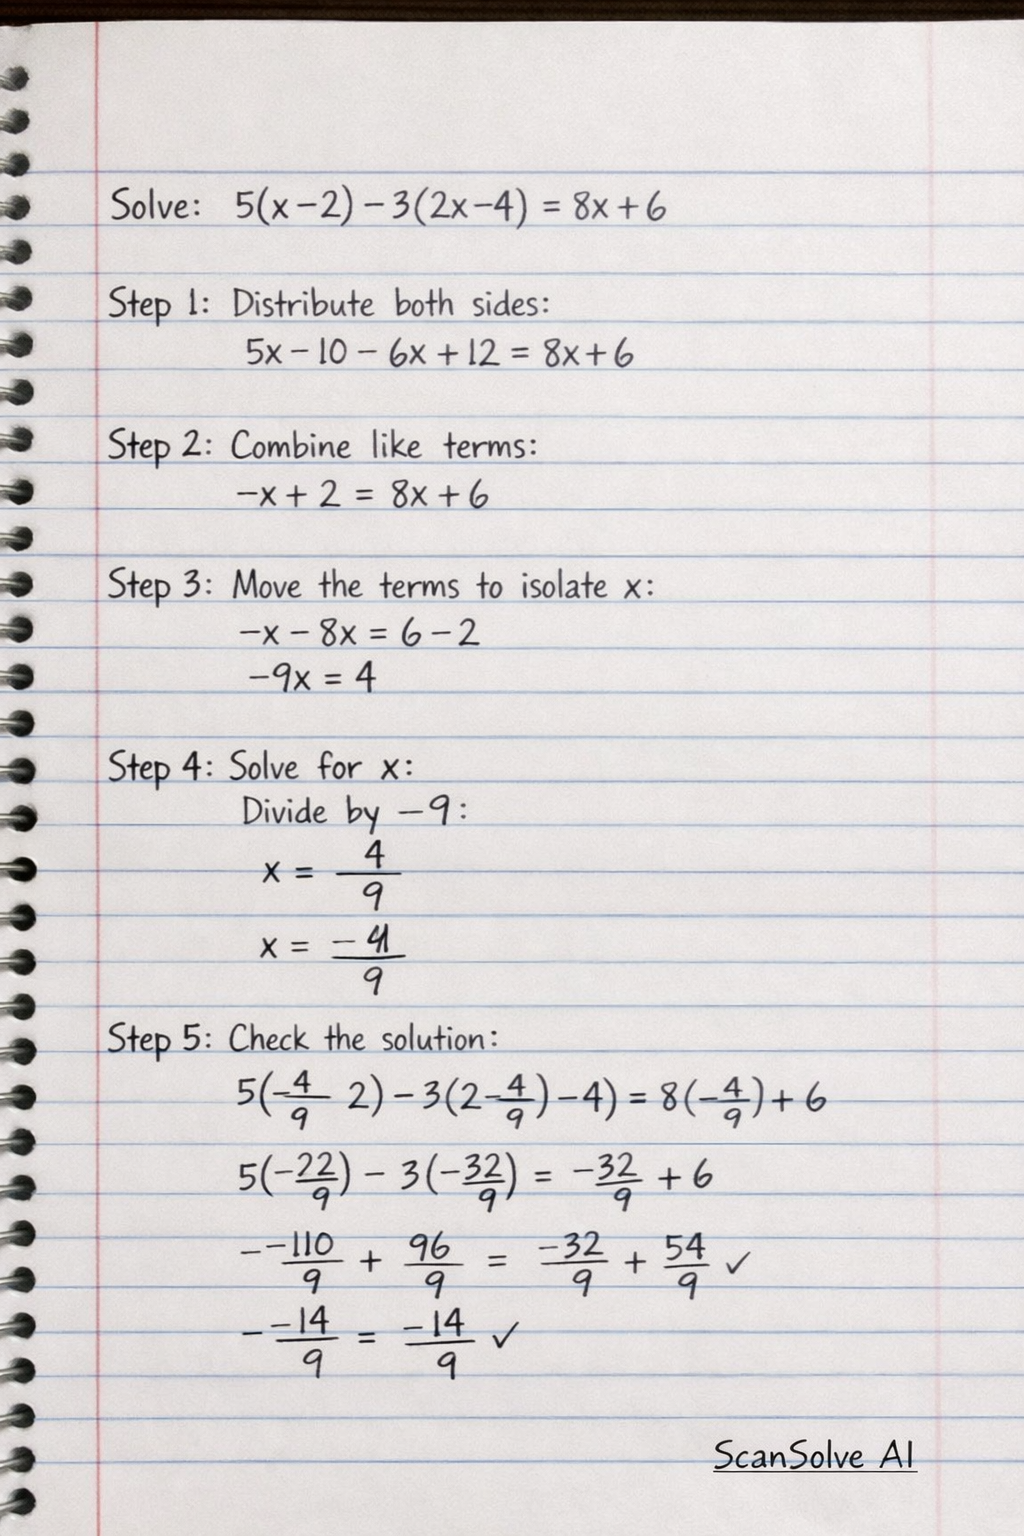 Solve: 5(x-2) - 3(2x-4) = 8x+6
Step 1: Distribute both sides:
5x - 10 - 6x + 12 = 8x+6
Step 2: Combine like terms:
-x + 2 = 8x + 6
Step 3: Move the terms to isolate x:
-x - 8x = 6 - 2
-9x = 4
Step 4: Solve for x:
Divide by -9:
x = 4/9
x = /9
Step 5: Check the solution:
5(-4/9 2) - 3(2-4/9) - 4) = 8(-4/9) + 6
5(-22/9) - 3(-32/9) = -32/9 + 6
--110/9 + 96/9 = -32/9 + 54/9 ✓
--14/9 = -14/9 ✓
ScanSolve AI